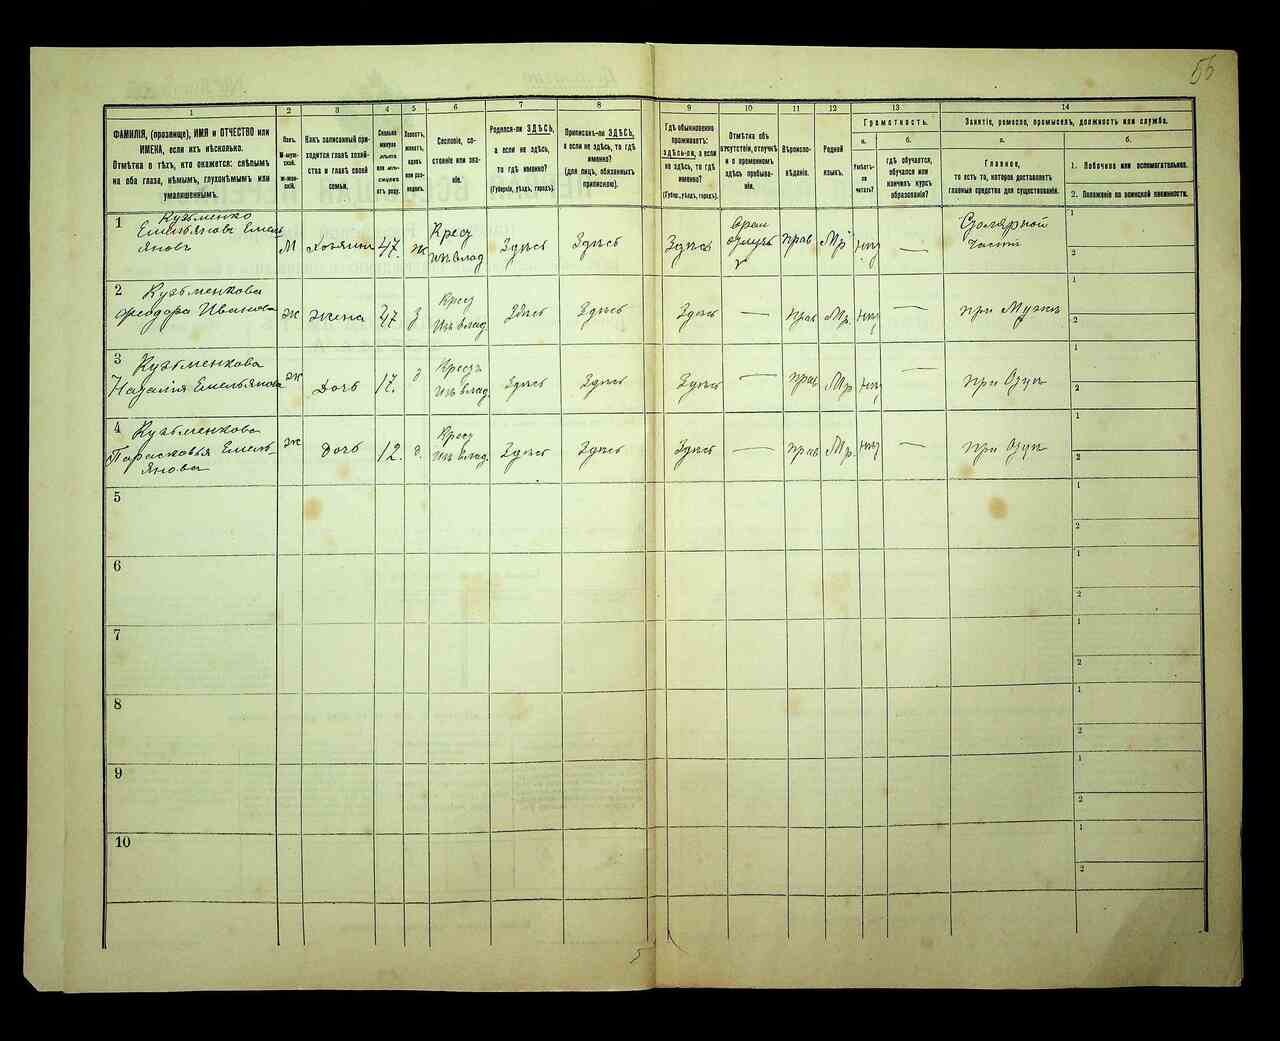 56
1
2
3
4
5
6
7
8
9
10
11
12
13
14
ФАМИЛІЯ, (прозвище), ИМЯ и ОТЧЕСТВО или
ИМЕНА, если ихъ нѣсколько.
Отмѣтка о тѣхъ, кто окажется: слѣпымъ
на оба глаза, нѣмымъ, глухонѣмымъ или
умалишеннымъ.
Полъ.
М-мужской.
Ж-женскій.
Какъ записанный приходится
главѣ хозяйства
и главѣ своей
семьи.
Сколько
минуло
лѣтъ
или мѣсяцевъ
отъ роду.
Холостъ,
женатъ,
вдовъ
или разведенъ.
Сословіе, состояніе
или званіе.
Родился-ли ЗДѢСЬ,
а если не здѣсь,
то гдѣ именно?
(Губернія, уѣздъ, городъ).
Приписанъ-ли ЗДѢСЬ,
а если не здѣсь, то гдѣ
именно?
(для лицъ, обязанныхъ
припискою).
Гдѣ обыкновенно
проживаетъ:
здѣсь-ли, а если
не здѣсь, то гдѣ
именно?
(Губерн., уѣздъ, городъ).
Отмѣтка объ
отсутствіи, отлучкѣ
и о временномъ
здѣсь пребываніи.
Вѣроисповѣданіе.
Родной
языкъ.
Грамотность.
а.
Умѣетъ-ли
читать?
б.
гдѣ обучается,
обучался или
кончилъ курсъ
образованія?
Занятіе, ремесло, промыселъ, должность или служба.
а.
Главное,
то есть то, которое доставляетъ
главныя средства для существованія.
б.
1. Побочное или вспомогательное.
2. Положеніе по воинской повинности.
1 Кузьменко
Емельяновъ Емель
яновъ М Хозяинъ 47. ж Крест изъ влад Здѣсь Здѣсь Здѣсь Прав Мр нѣтъ — Столярной части 1 2
2 Кузьменкова
Феодора Иванова ж жена 47 з Крест изъ влад Здѣсь Здѣсь Здѣсь — Прав Мр. нѣтъ — при Мужѣ 1 2
3 Кузьменкова
Наталія Емельянова ж Дочь 17. д Крест изъ влад Здѣсь Здѣсь Здѣсь — Прав Мр нѣтъ — при Отцѣ 1 2
4 Кузьменкова
Парасковья Емель
янова ж Дочь 12. д. Крест изъ влад Здѣсь Здѣсь Здѣсь — Прав Мр. нѣтъ — при Отцѣ 1 2
5 1 2
6 1 2
7 1 2
8 1 2
9 1 2
10 1 2
5